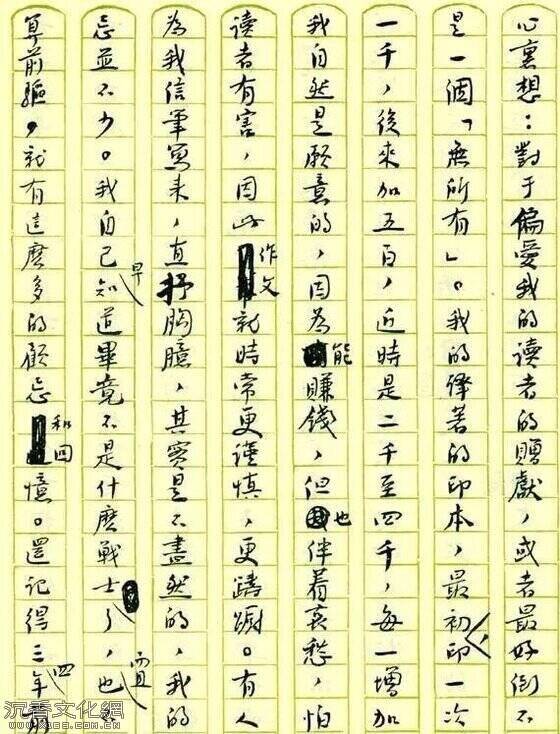 心裏想：對于偏愛我的讀者的贈獻，或者最好倒不
是一個「無所有」。我的譯著的印本，最初印一次
一千，後來加五百，近時是二千至四千，每一增加
我自然是願意的，因為能賺錢，但也伴着哀愁，怕
讀者有害，因此作文就時常更謹慎，更躊躇。有人
為我信筆寫來，直抒胸臆，其實是不盡然的，我的
忌並不少。我自己早知道畢竟不是什麼戰士了，而且也
算前驅，就有這麼多的顧忌和回憶。還記得三四年前
沉香文化網